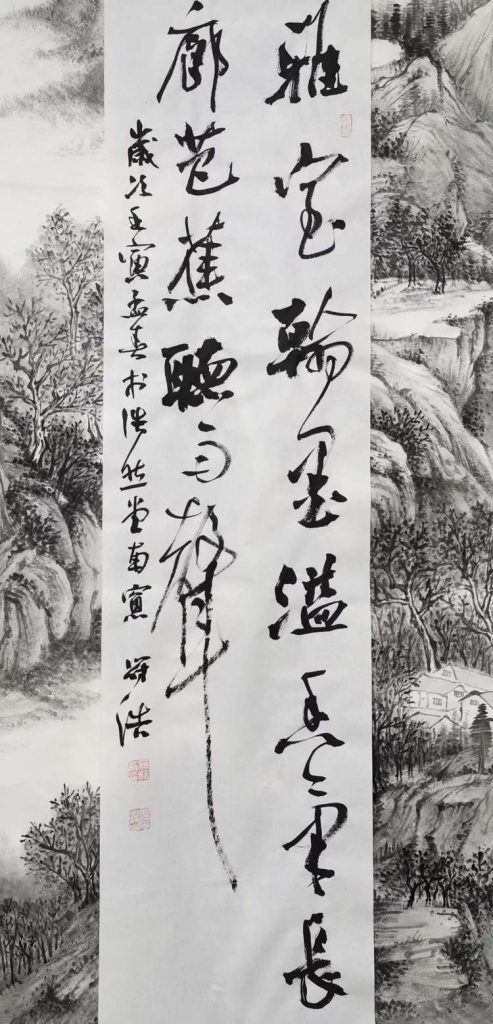 雅室翰墨溢香氣長
廊芭蕉聽雨聲
歲次壬寅孟春於浩然堂南 浩